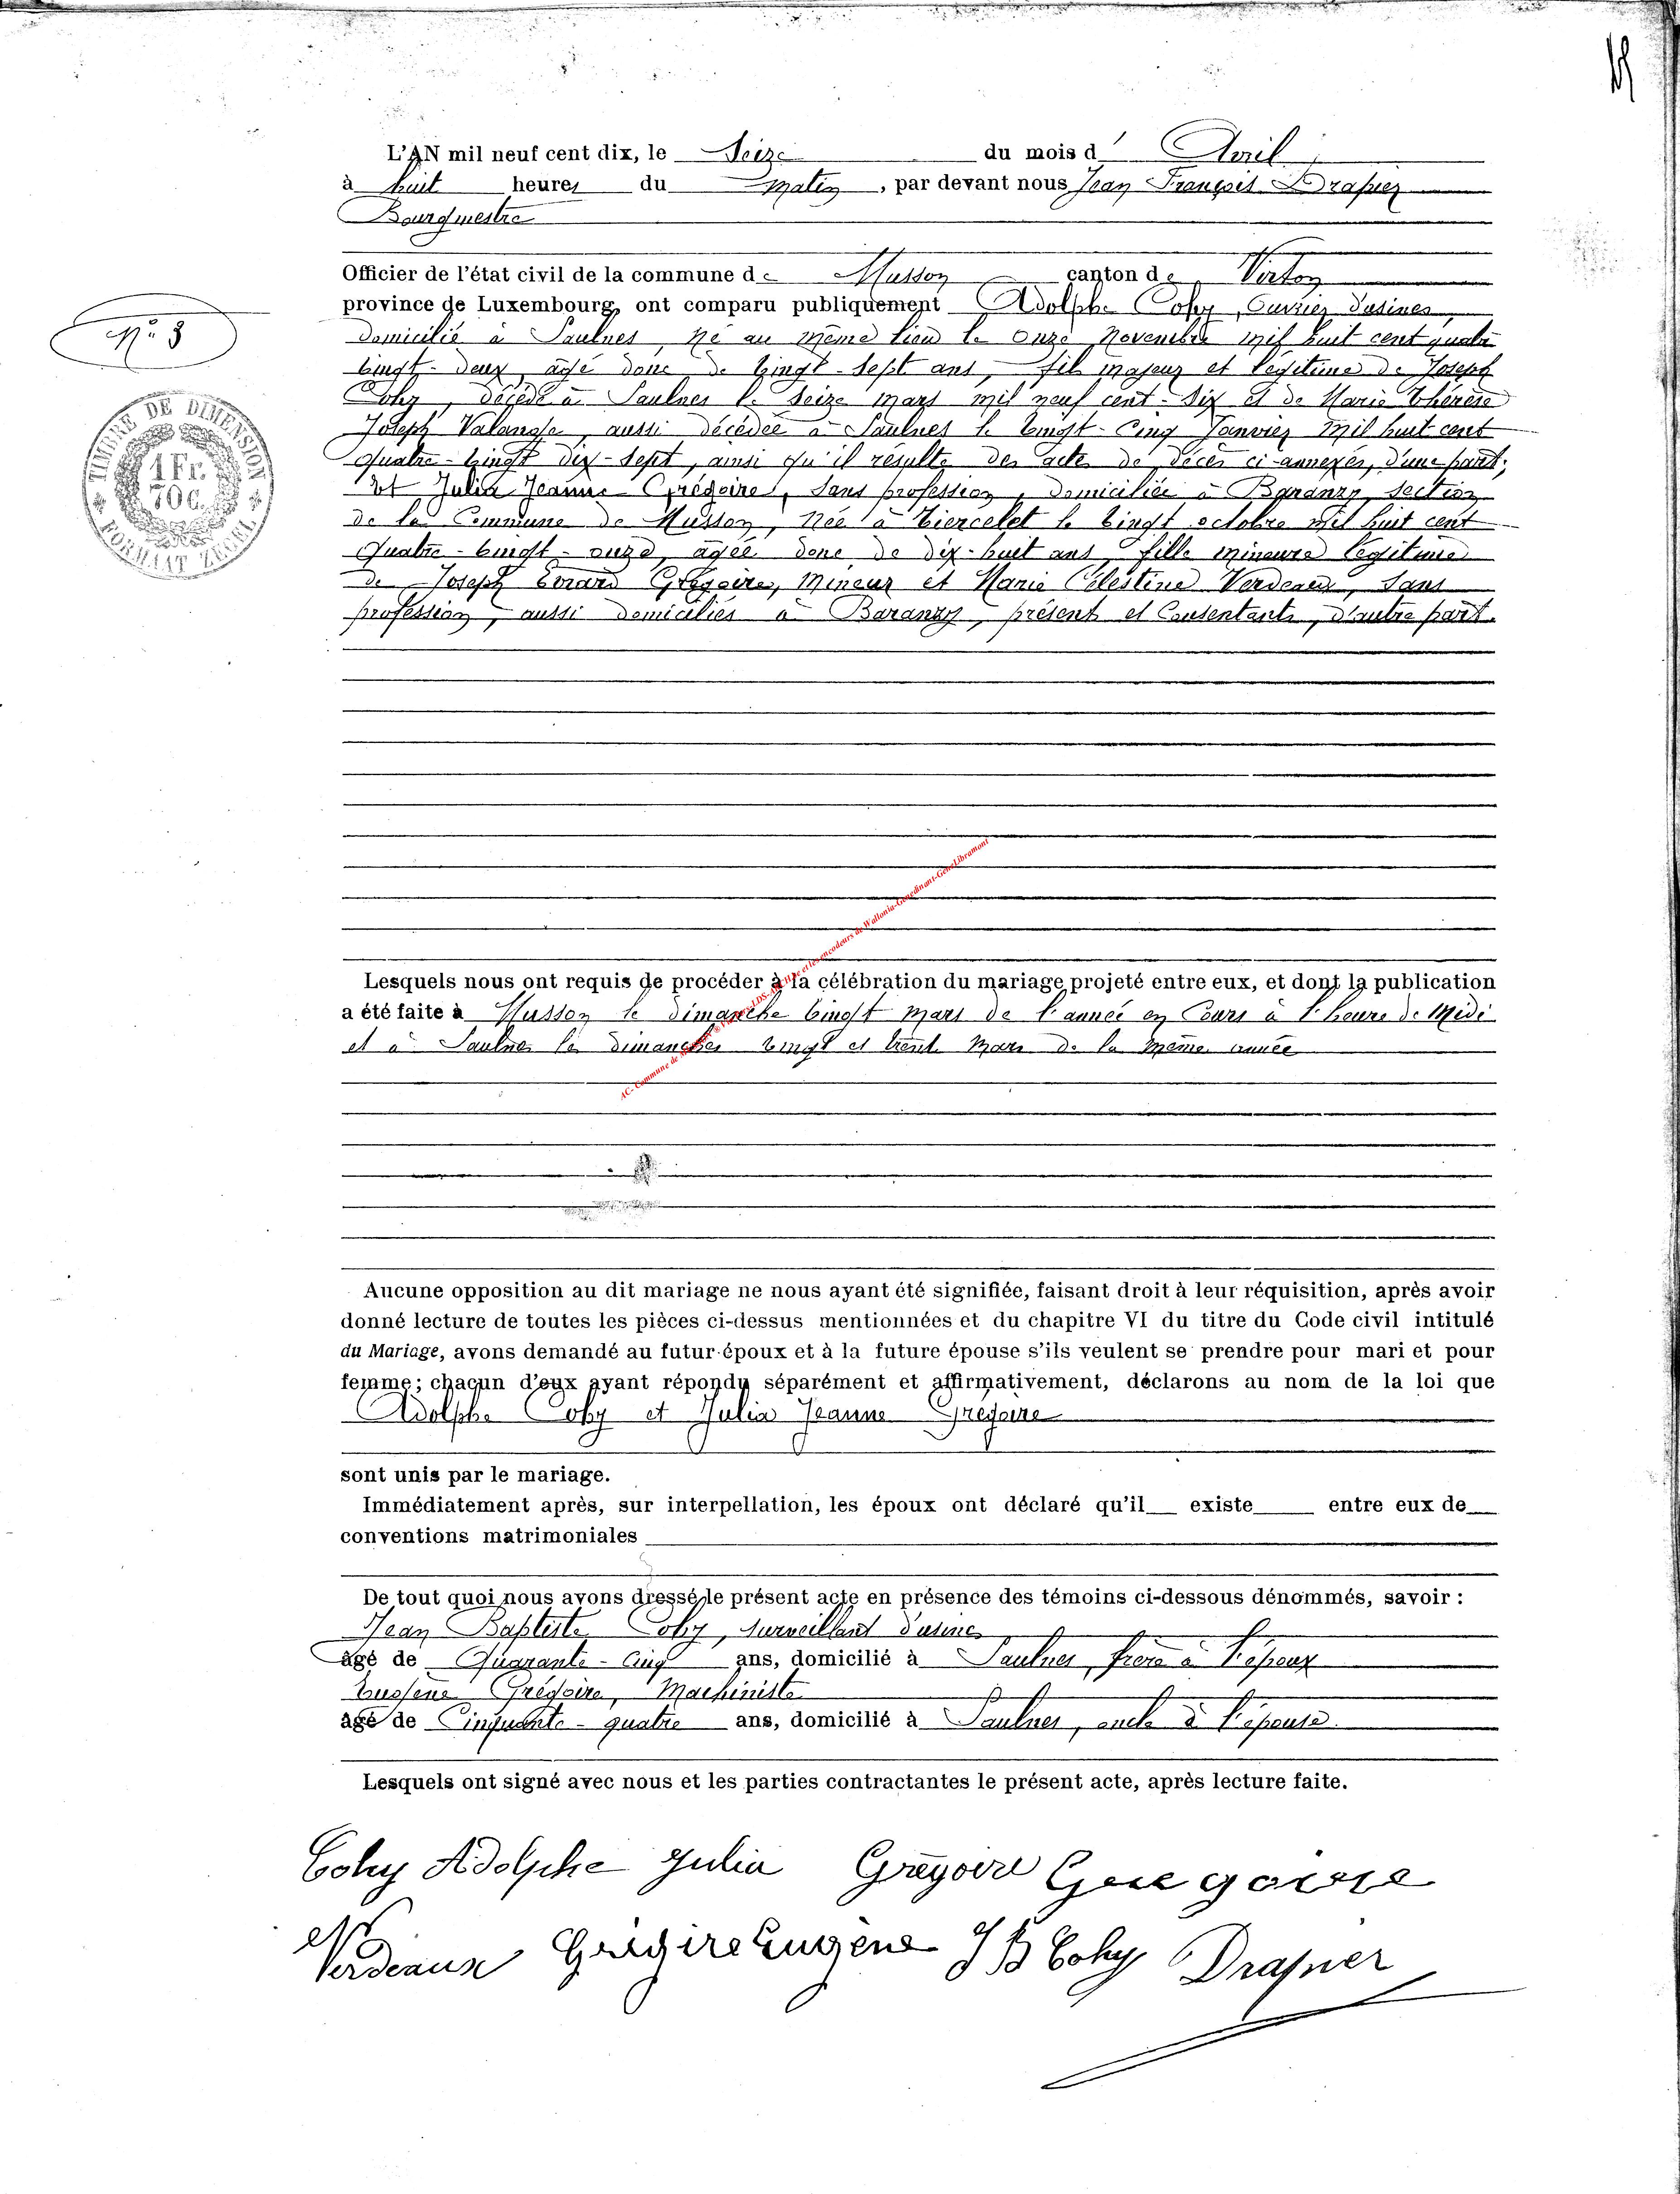 L'AN mil neuf cent dix, le Seize du mois d' Avril
à huit heures du matin, par devant nous Jean François Drapier
Bourgmestre
Officier de l'état civil de la commune de Musson canton de Virton
province de Luxembourg, ont comparu publiquement Adolphe Cohy, Ouvrier d'usines,
domicilié à Saulnes, né au même lieu le onze Novembre mil huit cent quatre
vingt-deux, âgé donc de vingt-sept ans, fils majeur et légitime de Joseph
Cohy, décédé à Saulnes le seize mars mil neuf cent-dix et de Marie Thérèse
Joseph, aussi décédée à Saulnes le vingt-cinq Janvier mil huit cent
quatre-vingt dix-sept, ainsi qu'il résulte des actes de décès ci-annexés, d'une part;
Et Julia Jeanne Grégoire, sans profession, domiciliée à Baranzy, section
de la Commune de Musson, née à Tiercelet le vingt octobre mil huit cent
Quatre-vingt-onze, âgée donc de dix-huit ans, fille mineure légitime
de Joseph Grégoire, Mineur et Marie Célestine Verdeaux, sans
profession, aussi domiciliés à Baranzy, présents et Consentants, d'autre part.
N° 8
TIMBRE DE DIMENSION
1 Fr.
70 C.
FORMAAT ZEGEL
Lesquels nous ont requis de procéder à la célébration du mariage projeté entre eux, et dont la publication
a été faite à Musson le dimanche vingt mars de l'année en Cours à l'heure de Midi
et à Saulnes les dimanches vingt et trente Mars de la même année
Aucune opposition au dit mariage ne nous ayant été signifiée, faisant droit à leur réquisition, après avoir
donné lecture de toutes les pièces ci-dessus mentionnées et du chapitre VI du titre du Code civil intitulé
du Mariage, avons demandé au futur époux et à la future épouse s'ils veulent se prendre pour mari et pour
femme; chacun d'eux ayant répondu séparément et affirmativement, déclarons au nom de la loi que
Adolphe Cohy et Julia Jeanne Grégoire
sont unis par le mariage.
Immédiatement après, sur interpellation, les époux ont déclaré qu'il existe entre eux de
conventions matrimoniales
De tout quoi nous avons dressé le présent acte en présence des témoins ci-dessous dénommés, savoir :
Jean Baptiste Cohy, surveillant d'usines
âgé de Quarante-Cinq ans, domicilié à Saulnes, frère à l'époux
Eugène Grégoire, Machiniste
âgé de Cinquante-quatre ans, domicilié à Saulnes, oncle à l'épouse
Lesquels ont signé avec nous et les parties contractantes le présent acte, après lecture faite.
Cohy Adolphe Julia Grégoire Gregoire
Verdeaux Grégire Eugène J B Cohy Drapier